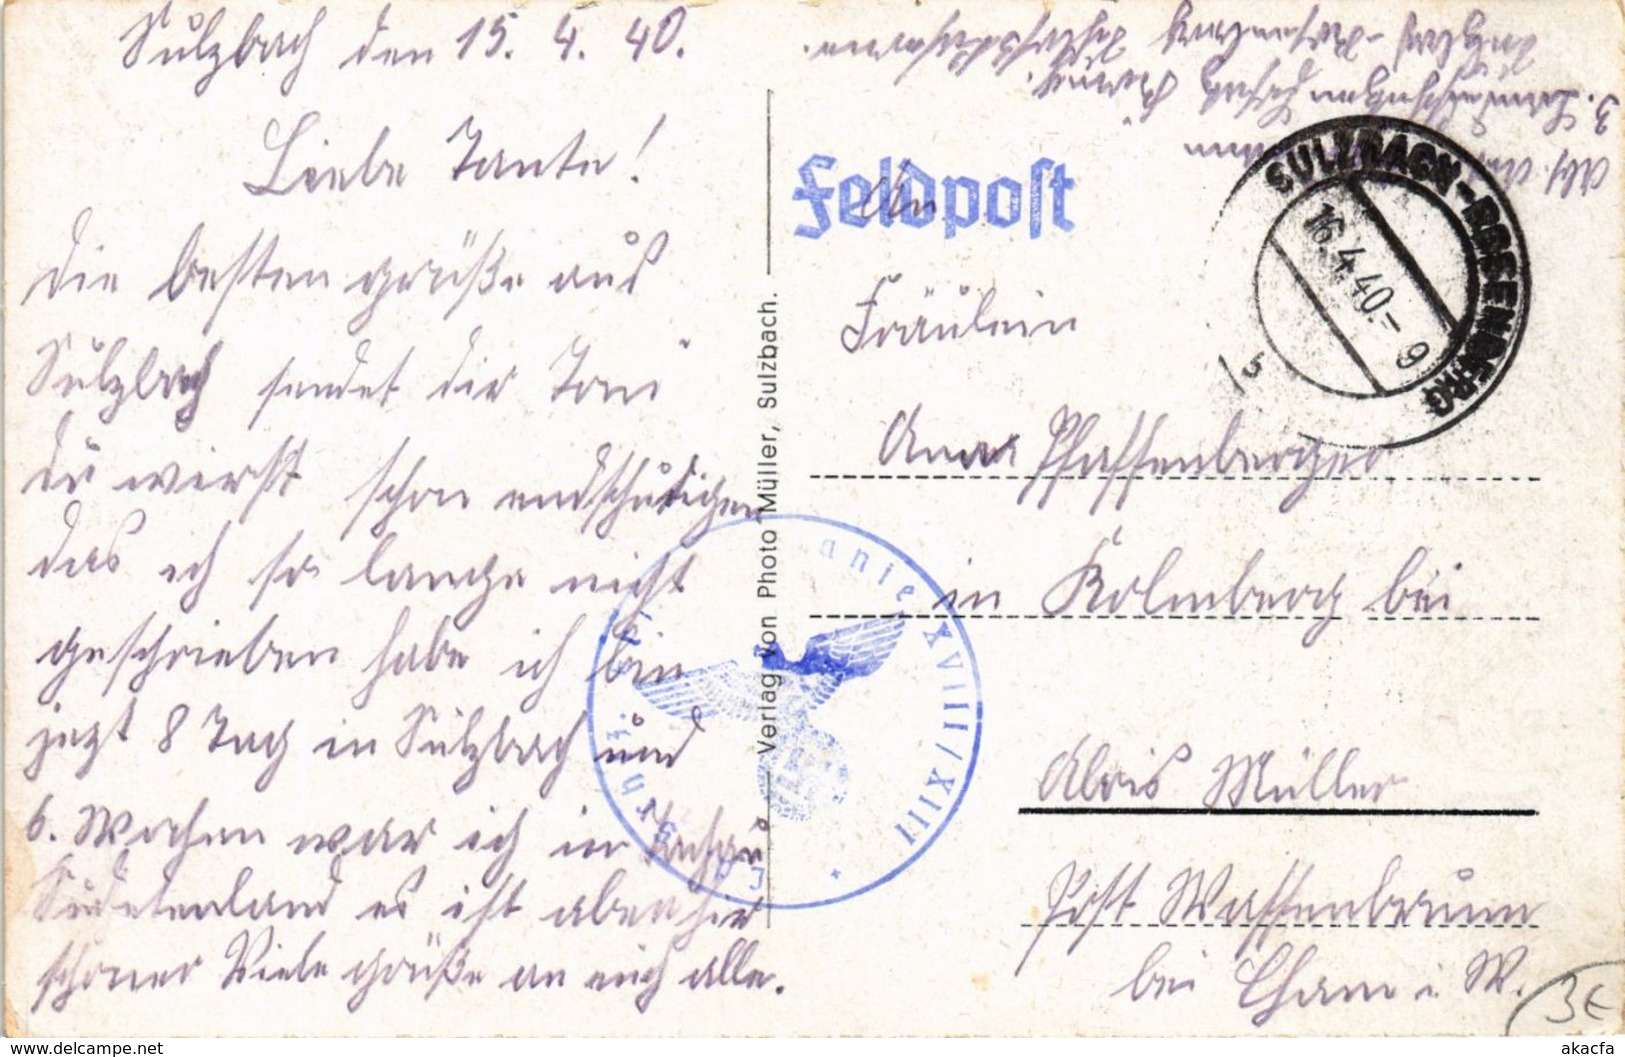 Sulzbach den 15. 4. 40.
Liebe Tante!
die besten grüße aus
Sulzbach sendet dir Toni
du wirst schon endschuligen
das ich so lange nicht
geschrieben habe ich bin
jezt 8 Tag in Sulzbach und
6. Wochen war ich in
Sudetenland es ist aber hir
schoner Viele grüße an euch alle.
Verlag von Photo Müller, Sulzbach.
Abs.
3. Landesschützen
Sulzbach-Rosenberg
Feldpost
An
SULZBACH-ROSENBERG
16.4.40.-9
b
Fräulein
Anna Pfaffenberger
in Kolmberg bei
Alois Müller
Post Waffenbrunn
bei Cham i. W.
XVIII/XIII
3€
akacfa